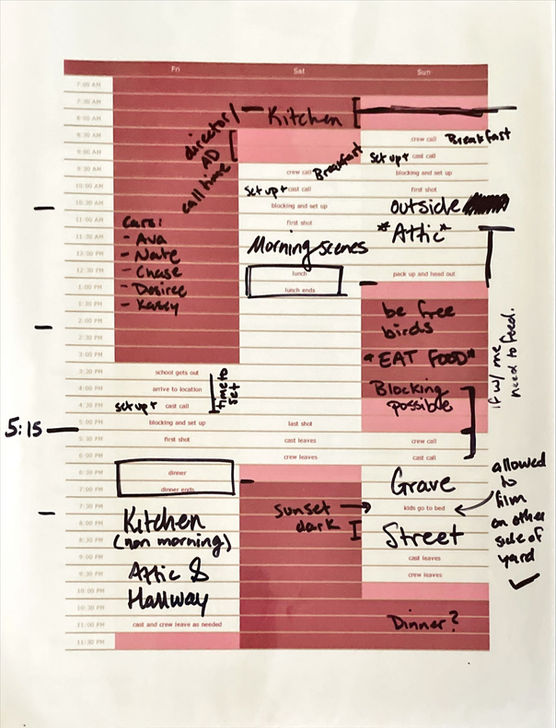 Fri Sat Sun
7:00 AM
7:30 AM
8:00 AM
director/ Kitchen
8:30 AM
AD
crew call Breakfast
9:00 AM
call time
set up + cast call
9:30 AM
crew call Breakfast
blocking and set up
10:00 AM
set up + cast call
first shot
10:30 AM
blocking and set up
outside
11:00 AM
first shot
Cars:
*Attic*
11:30 AM
- Ava
Morning scenes
12:00 PM
- Nate
12:30 PM
- Chase
lunch
pack up and head out
1:00 PM
- Desiree
lunch ends
1:30 PM
- Kasey
be free
2:00 PM
birds
2:30 PM
"EAT FOOD"
3:00 PM
if w/ me
need to feed.
3:30 PM
school gets out
Blocking
4:00 PM
arrive to location
time to
set
possible
4:30 PM
set up + cast call
5:00 PM
blocking and set up
last shot
5:15
5:30 PM
first shot
cast leaves
crew call
6:00 PM
crew leaves
cast call
6:30 PM
dinner
Grave
7:00 PM
dinner ends
7:30 PM
sunset
kids go to bed
allowed
to
film
on other
side of
yard
8:00 PM
Kitchen
dark
8:30 PM
(non morning)
Street
9:00 PM
cast leaves
9:30 PM
Attic &
crew leaves
10:00 PM
Hallway
10:30 PM
11:00 PM
cast and crew leave as needed
Dinner?
11:30 PM